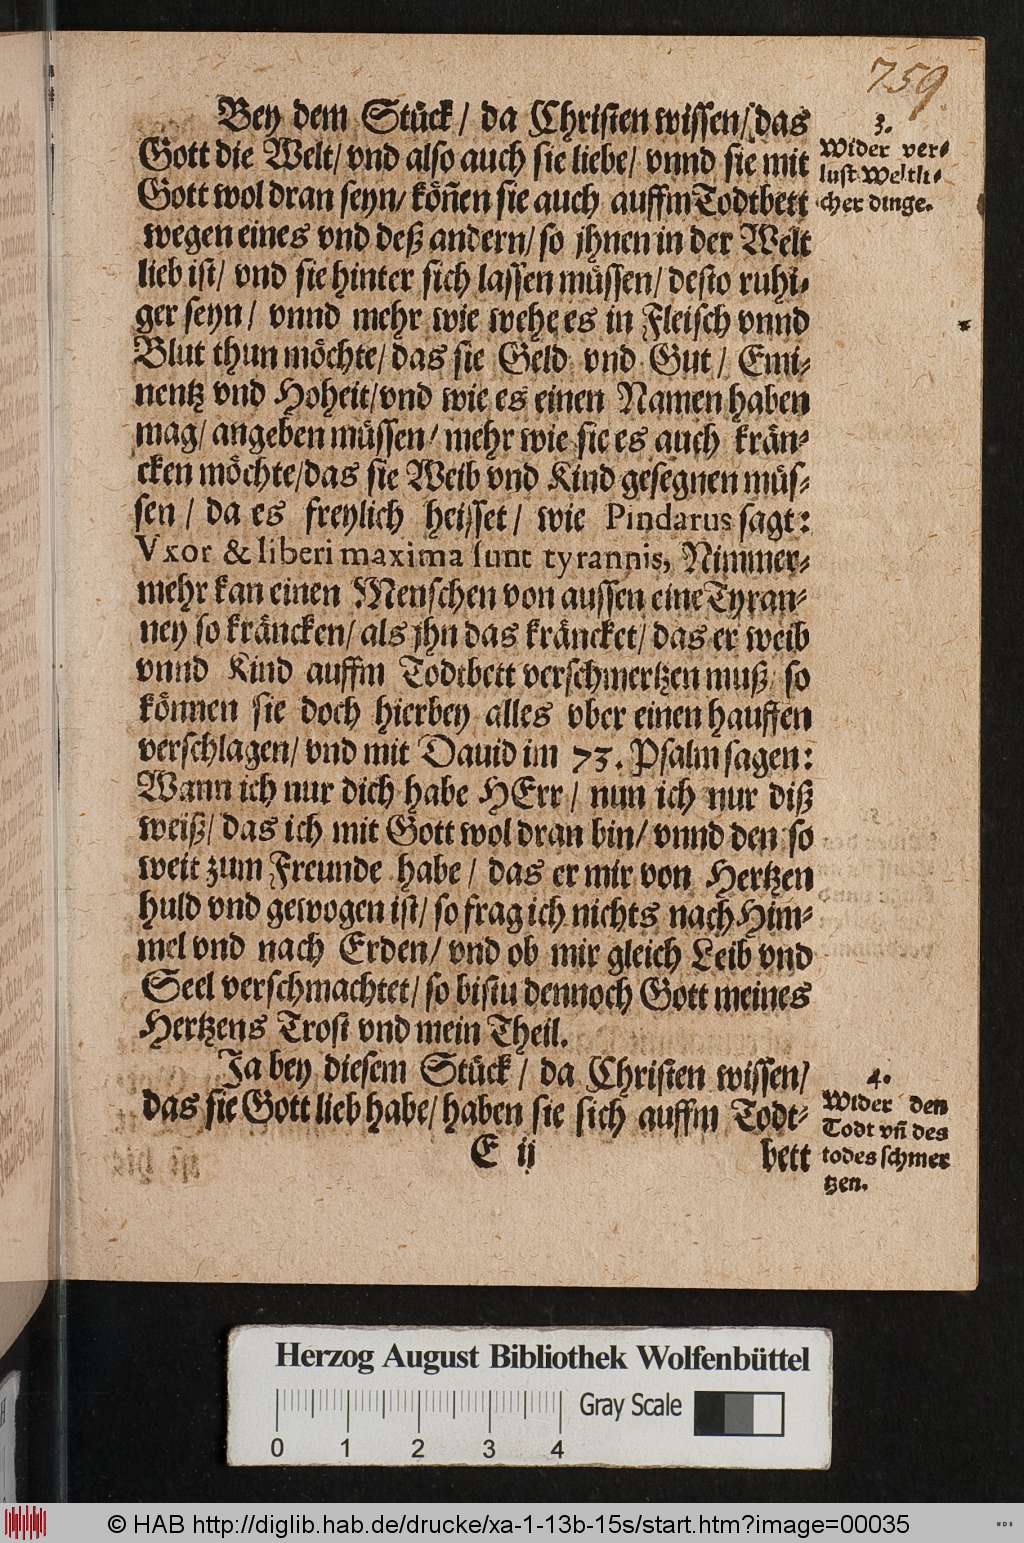 759
Bey dem Stück / da Christen wissen / das
Gott die Welt / vnd also auch sie liebe / vnnd sie mit
Gott wol dran seyn / köñen sie auch auffm Todtbett
wegen eines vnd deß andern / so jhnen in der Welt
lieb ist / vnd sie hinter sich lassen müssen / desto ruhi-
ger seyn / vnnd mehr wie wehe es in Fleisch vnnd
Blut thun möchte / das sie Geld vnd Gut / Emi-
nentz vnd Hoheit / vnd wie es einen Namen haben
mag / angeben müssen / mehr wie sie es auch krän-
cken möchte / das sie Weib vnd Kind gesegnen müs-
sen / da es freylich heisset / wie Pindarus sagt:
Vxor & liberi maxima sunt tyrannis, Nimmer-
mehr kan einen Menschen von aussen eine Tyran-
ney so kräncken / als jhn das kräncket / das er weib
vnnd Kind auffm Todtbett verschmertzen muß / so
können sie doch hierbey alles vber einen hauffen
verschlagen / vnd mit Dauid im 73. Psalm sagen:
Wann ich nur dich habe HErr / nun ich nur diß
weiß / das ich mit Gott wol dran bin / vnnd den so
weit zum Freunde habe / das er mir von Hertzen
huld vnd gewogen ist / so frag ich nichts nach Him-
mel vnd nach Erden / vnd ob mir gleich Leib vnd
Seel verschmachtet / so bistu dennoch Gott meines
Hertzens Trost vnd mein Theil.
Ja bey diesem Stück / da Christen wissen /
das sie Gott lieb habe / haben sie sich auffm Todt-
E ij bett
3.
Wider ver-
lust Weltli-
cher dinge.
4.
Wider den
Todt vñ des
todes schmer
tzen.
Herzog August Bibliothek Wolfenbüttel
Gray Scale
0 1 2 3 4
© HAB http://diglib.hab.de/drucke/xa-1-13b-15s/start.htm?image=00035